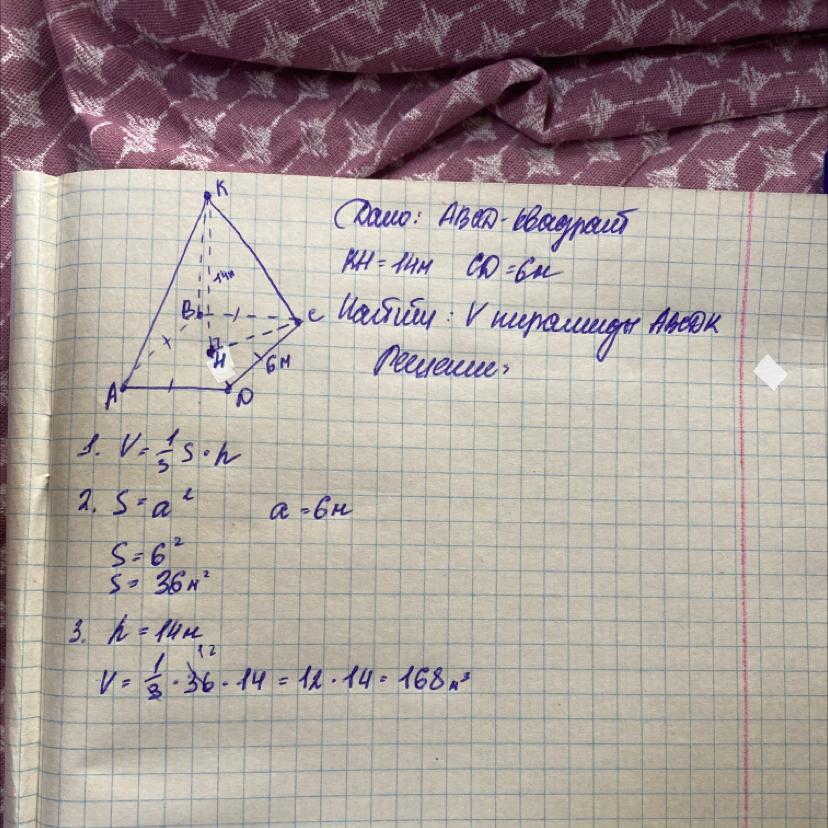 K
14м
B
C
H
6м
A
D
Дано: ABCD-квадрат
KH = 14м CD = 6м
Найти: V пирамиды ABCDK
Решение:
1. V = 1/3 S · h
2. S = a² a = 6м
S = 6²
S = 36м²
3. h = 14м
12
V = 1/3 · 36 · 14 = 12 · 14 = 168м³